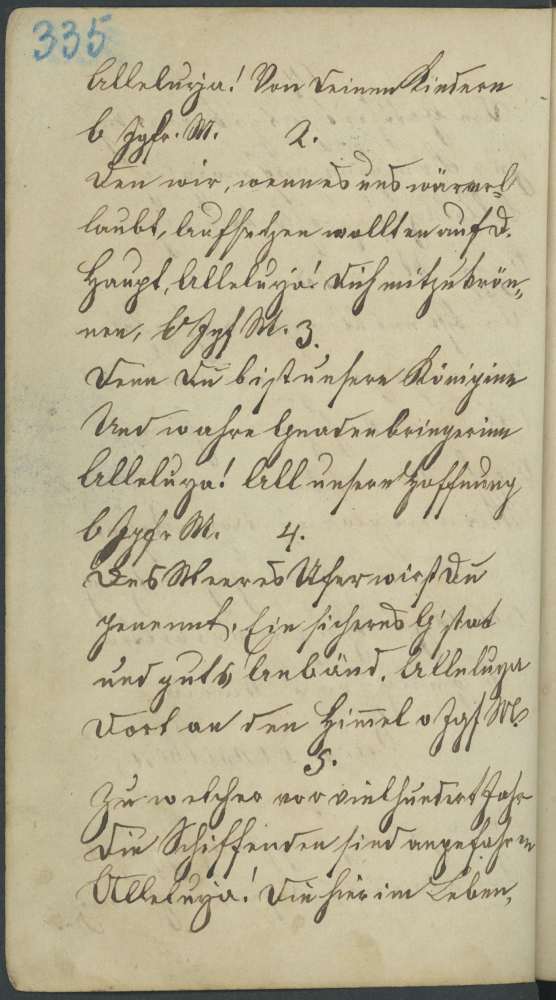 335
Alleluja! Von deinen Kindern
O Jgfr. M. 2.
Den wir, wenn es uns wär verl=
laubt, Aufsetzen wollten auf d.
Haupt, Alleluja! Dich mit zu krön=
nen, O Jgf M. 3.
Denn Du bist unsere Königinn
Und wahre Gnadenbringerinn
Alleluja! All unsere Hoffnung
O Jgfr M. 4.
Des Meeres Ufer wirst Du
genennt, Ein sicheres G'stat
und guts Anländ, Alleluja
Dort an den Him̅el o Jgf M.
5.
Zu welcher vor viel hundert Jahr
Die Schiffenden sind angefahren
Alleluja! Die hier im Leben,